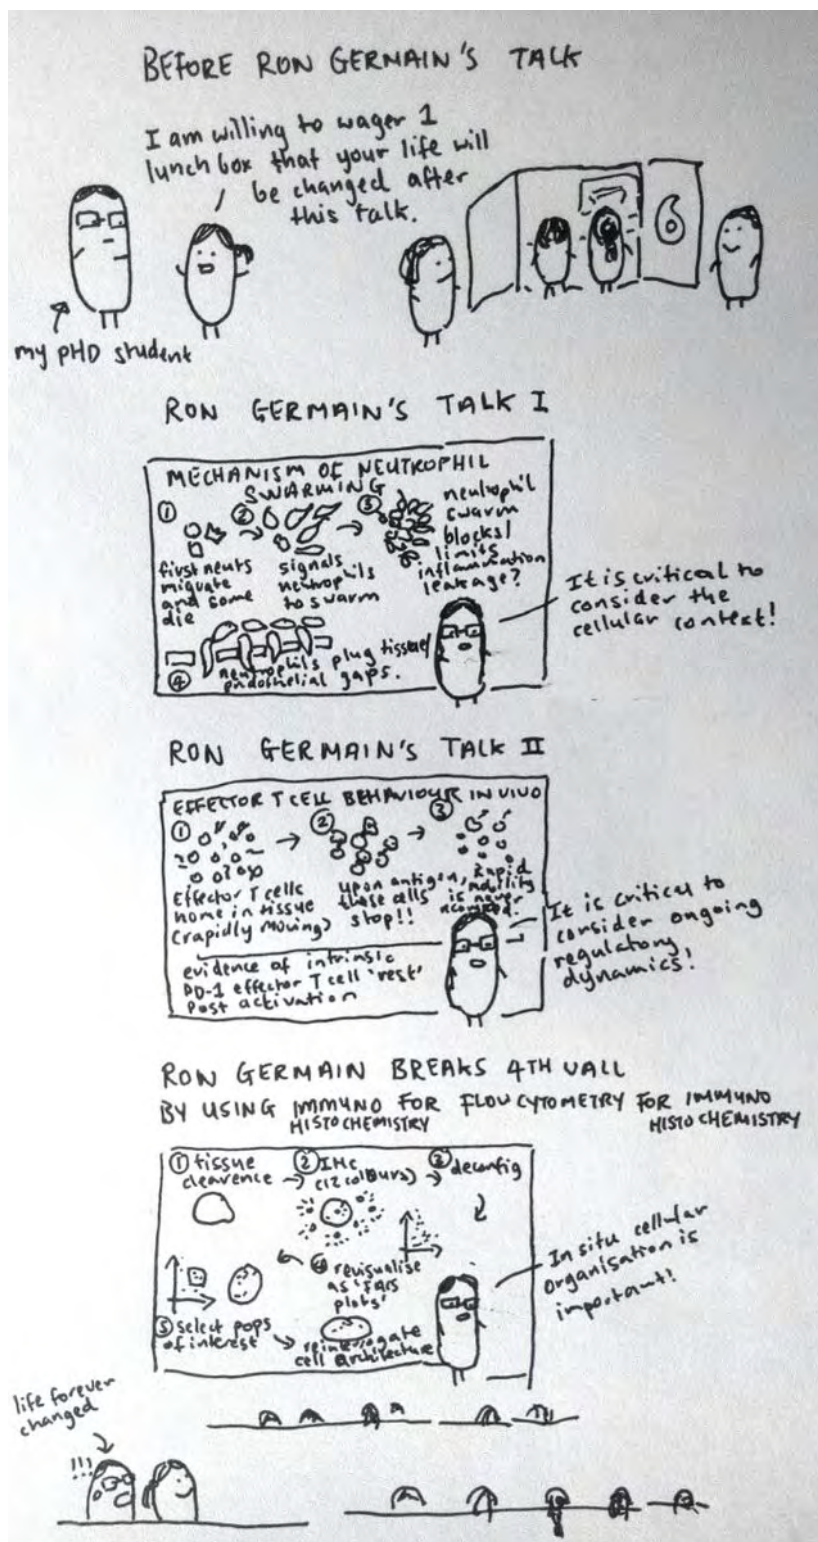 BEFORE RON GERMAIN'S TALK
I am willing to wager 1
lunch box that your life will
be changed after
this talk.
6
my PHD student
RON GERMAIN'S TALK I
MECHANISM OF NEUTROPHIL
SWARMING
①
first neuts
migrate
and some
die
②
signals
neutrophils
to swarm
③
neutrophil
swarm
blocks/
limits
inflammation
leakage?
④
neutrophils plug tissue/
endothelial gaps.
It is critical to
consider the
cellular context!
RON GERMAIN'S TALK II
EFFECTOR T CELL BEHAVIOUR IN VIVO
①
Effector T cells
home in tissue
(rapidly moving)
②
upon antigen,
these cells
stop!!
③
Rapid
mobility
is never
evidence of intrinsic
PD-1 effector T cell 'rest'
post activation
It is critical to
consider ongoing
regulatory
dynamics!
RON GERMAIN BREAKS 4TH WALL
BY USING IMMUNO FOR FLOW CYTOMETRY FOR IMMUNO
HISTOCHEMISTRY HISTOCHEMISTRY
① tissue
clearence
② IHC
(12 colours)
③ deconfig
④ revisualise
as 'FACS
plots'
⑤ select pops
of interest
reinterrogate
cell architecture
In situ cellular
organisation is
important!
life forever
changed
!!!